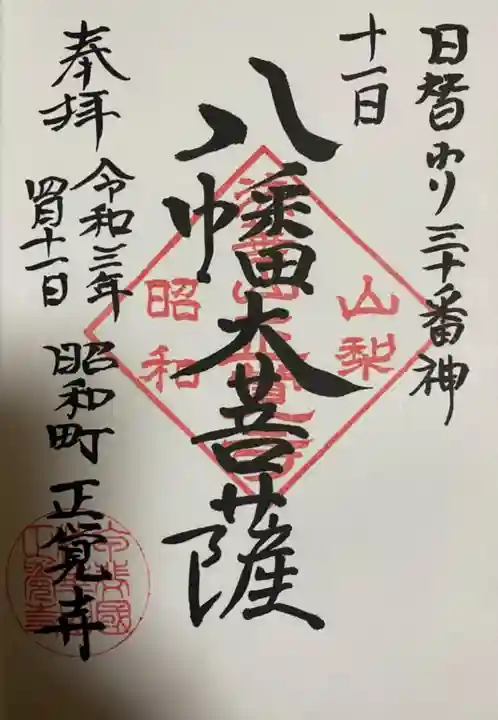 日替わり三十番神
十一日
八幡大菩薩
山梨
昭和
奉拝
令和三年
四月十一日
昭和町 正覚寺